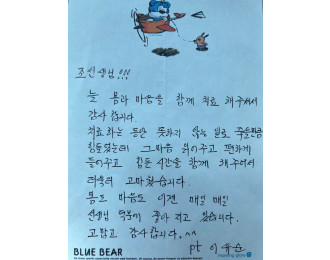 조선생님!!!
늘 몸과 마음을 함께 치료 해주셔서
감사 합니다.
치료 하는 동안 뜻하지 않는 일로 죽을만큼
힘들었는데 그마음 읽어주고 편하게
들어주고 힘든 시간을 함께 해주어서
더욱더 고마웠습니다.
몸도 마음도 이젠 매일 매일
선생님 덕분에 좋아 지고 있습니다.
고맙고 감사합니다.^^
BLUE BEAR
pt 이